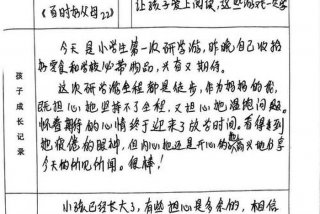 《百时好父母22》
让孩子爱上阅读，这些游戏一定要
孩子成长记录
今天是小学生第一次研学游，昨晚自己收拾
好零食和学校必带物品，兴奋又期待。
这次研学坐程都是徒步，作为妈妈的我，
既担心她坚持不了全程，又担心她渴饱问题。
怀着期待的心情终于迎来了放学时间。看得到
她疲惫的眼神，但内心她还是开心的高兴地分享
今天的所见所闻。很棒！
小孩已经长大了，有些担心是多余的，相信